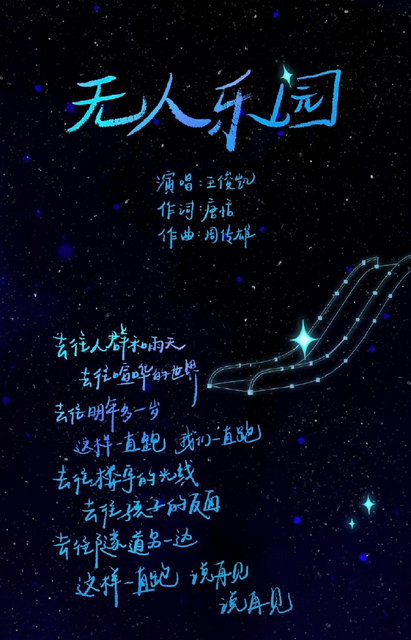 无人乐园
演唱：王俊凯
作词：唐恬
作曲：周传雄
去往人群和雨天
去往喧哗的世界
去往明年多一岁
这样一直跑 我们一直跑
去往楼宇的光线
去往孩子的反面
去往隧道另一边
这样一直跑 说再见
说再见